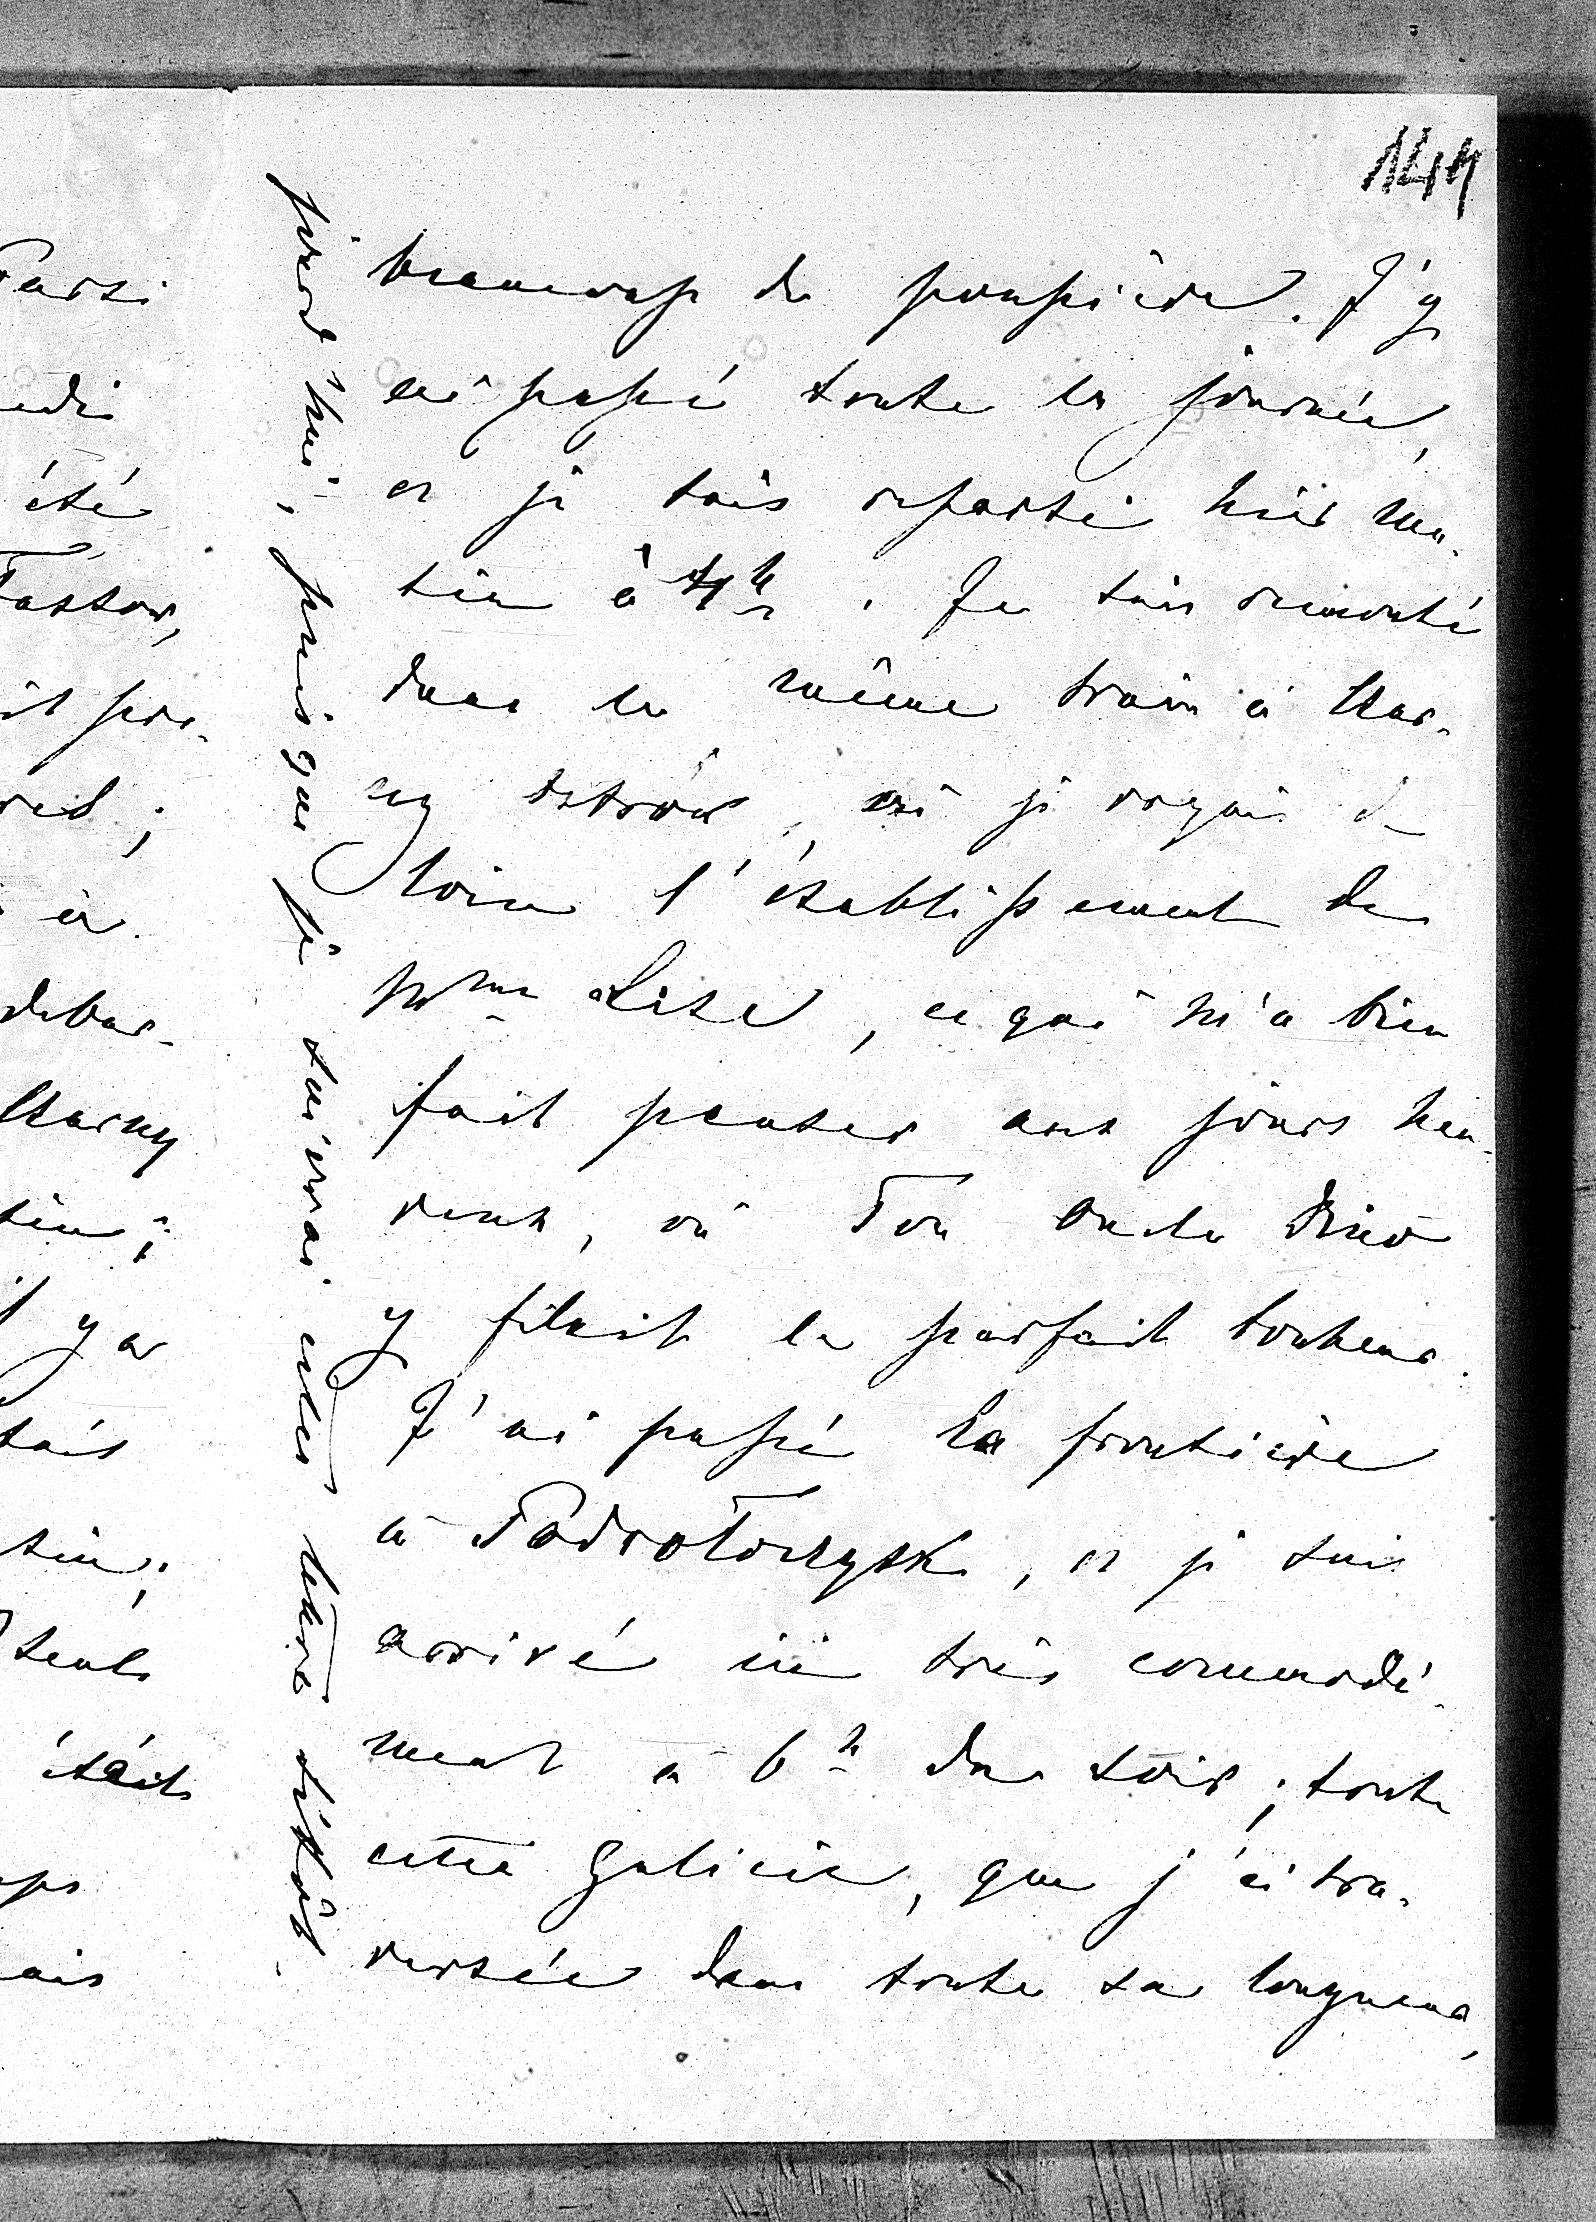 144
beaucoup de poussière. J'y
ai passé toute la journée,
et je suis reparti hier ma-
tin à 4h. Je suis remonté
dans le même train à Star-
ry Ostrow, où je voyais de
loin l'établissement de
Mme Lise, ce qui m'a bien
fait penser aux jours heu-
reux, où Ton Oncle
y filait le parfait bonheur.
J'ai passé la frontière
à Podwoloczysk, et je suis
arrivé ici très commodé-
ment à 6h du soir; toute
cette Galicie, que j'ai tra-
versée dans toute sa longueur,
jourd'hui, puisque je suivrai cette lettre
Parti
été
Fastow,
à
debar-
Starny
y a
suis
seuls
était